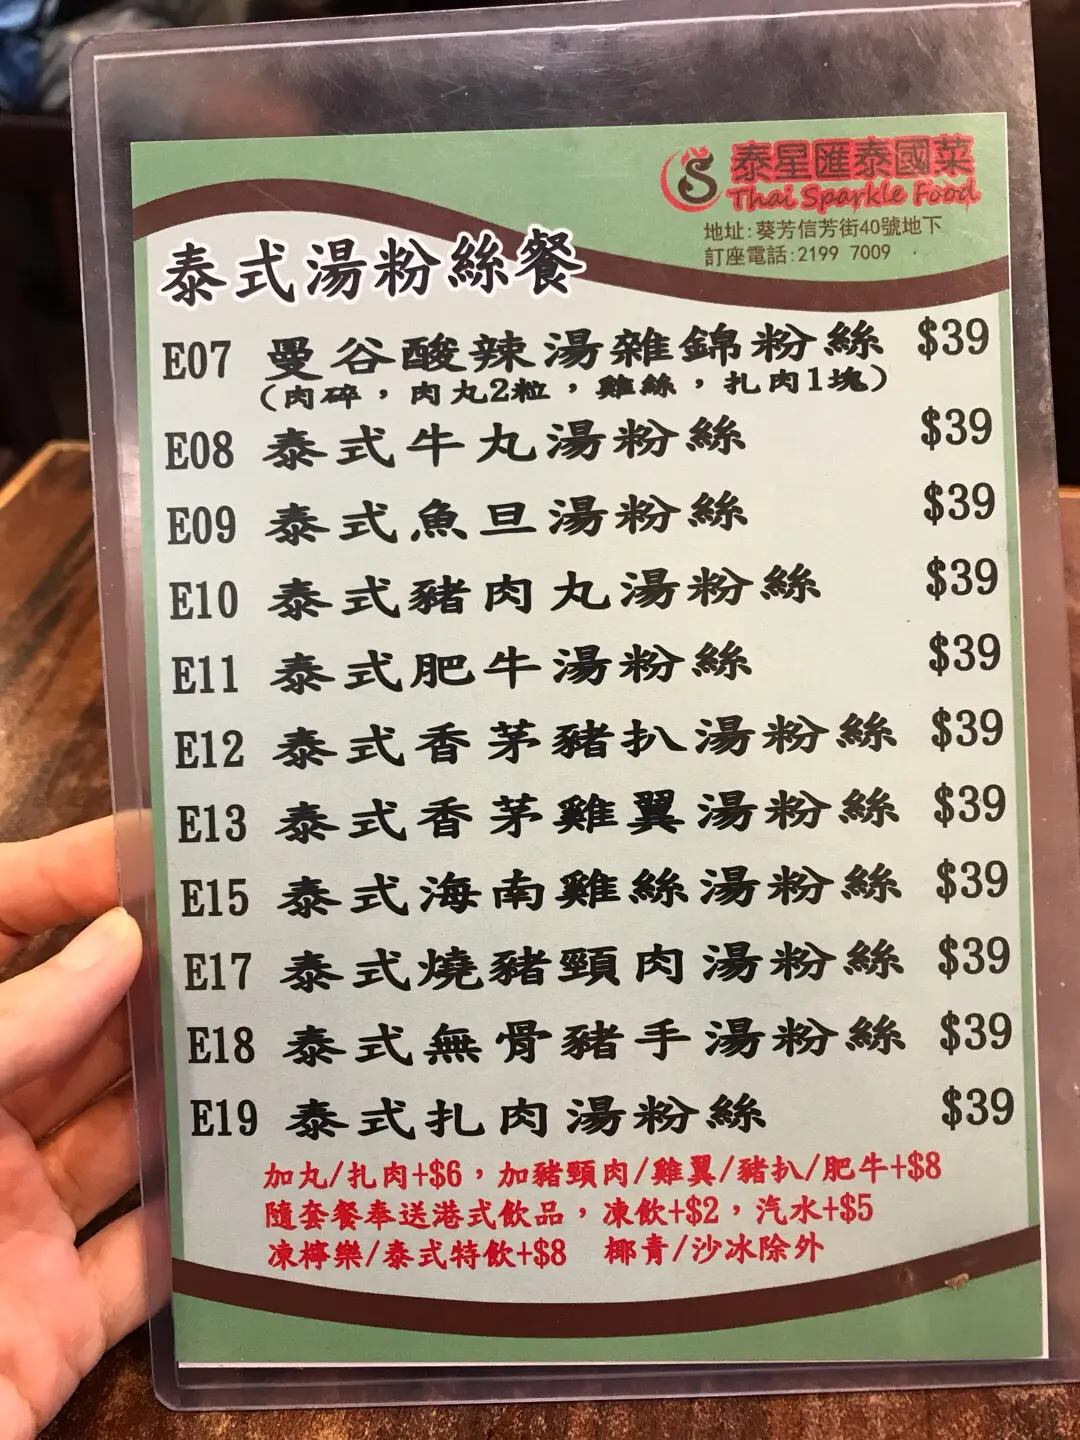 泰星匯泰國菜
Thai Sparkle Food
地址:葵芳信芳街40號地下
訂座電話:2199 7009
泰式湯粉絲餐
E07 曼谷酸辣湯雜錦粉絲 $39
(肉碎，肉丸2粒，雞絲，扎肉1塊)
E08 泰式牛丸湯粉絲 $39
E09 泰式魚旦湯粉絲 $39
E10 泰式豬肉丸湯粉絲 $39
E11 泰式肥牛湯粉絲 $39
E12 泰式香茅豬扒湯粉絲 $39
E13 泰式香茅雞翼湯粉絲 $39
E15 泰式海南雞絲湯粉絲 $39
E17 泰式燒豬頸肉湯粉絲 $39
E18 泰式無骨豬手湯粉絲 $39
E19 泰式扎肉湯粉絲 $39
加丸/扎肉+$6，加豬頸肉/雞翼/豬扒/肥牛+$8
隨套餐奉送港式飲品，凍飲+$2，汽水+$5
凍檸樂/泰式特飲+$8 椰青/沙冰除外